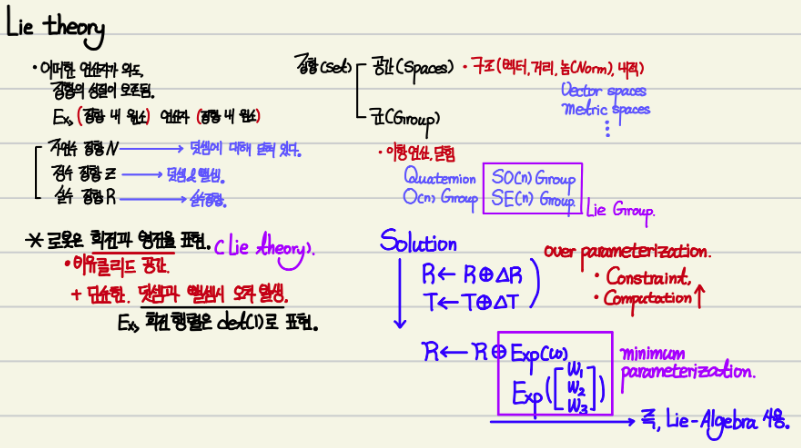 Lie theory
• 어떠한 연산자가 와도,
집합의 성질이 보존됨.
Ex, (집합 내 원소) 연산자 (집합 내 원소)
자연수 집합 N → 덧셈에 대해 닫혀 있다.
정수 집합 Z → 덧셈 & 뺄셈.
실수 집합 R → 실수집합.
집합(set)
공간(Spaces) • 구조(벡터, 거리, 놈(Norm), 내적)
Vector spaces
Metric spaces
⋮
군(Group)
• 이항연산, 닫힘
Quaternion SO(n) Group
O(n) Group SE(n) Group.
Lie Group.
* 로봇은 회전과 병진을 표현. (Lie theory).
• 비유클리드 공간.
+ 단순한. 덧셈과 뺄셈시 오차 발생.
Ex, 회전행렬은 det(1)로 표현.
Solution
R ← R ⊕ ΔR
T ← T ⊕ ΔT
over parameterization.
• Constraint,
• Computation ↑
R ← R ⊕ Exp(w)
Exp([w1 w2 w3])
minimum
parameterization.
→ 즉, Lie-Algebra 사용.